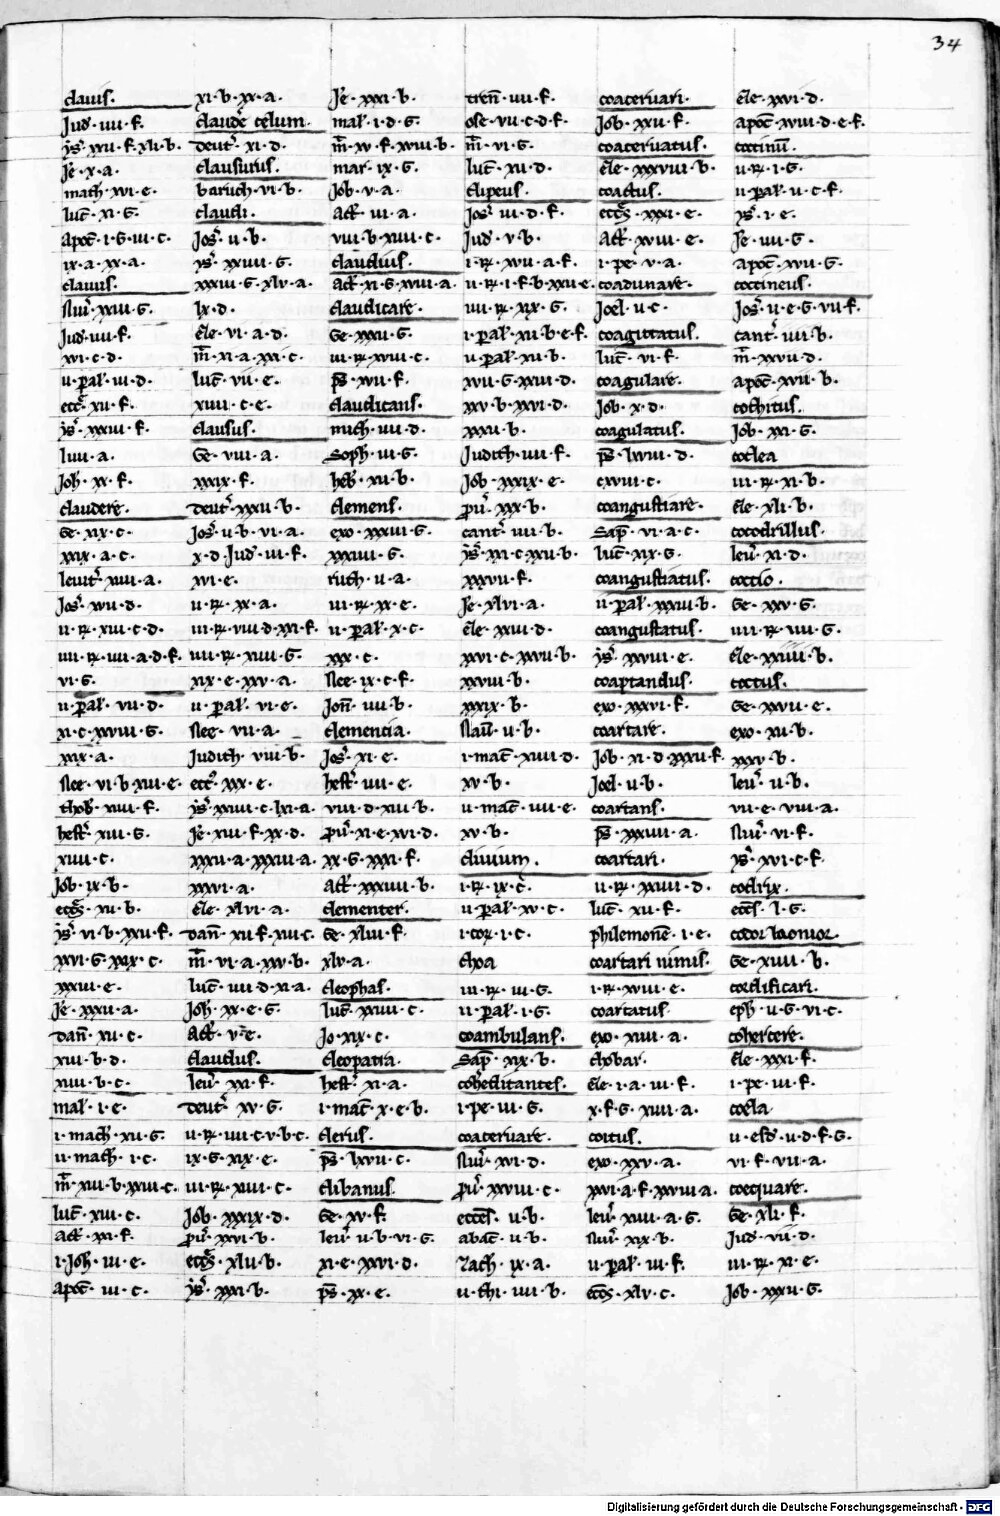 34
clauis.
Jud̄·iiii·f.
ys̄·xxii·f·xlii·b.
Je·x·a.
math·xvi·e.
luc̄·xi·g.
apoc̄·i·g·iii·c.
ix·a·xx·a.
clauus.
Nūr·xxiii·g.
Jud·iiii·f.
xvi·c·d.
ii·pal̄·iii·d.
ecc̄·xii·f.
ys̄·xxiii·f.
liiii·a.
Joh·xx·f.
claudere.
Ge·xix·c.
xxix·a·c.
leuit̄·xiiii·a.
Jos̄·xvii·d.
ii·R·xiii·c·d.
iiii·R·iiii·a·d·f.
vi·g.
ii·pal̄·vii·d.
xi·c·xxviii·g.
xxix·a.
Nee·vi·b·xiii·e.
thob̄·xiiii·f.
hest̄·xiii·g.
xiiii·c.
Job·ix·b.
ecc̄s·xii·b.
ys̄·vi·b·xxii·f.
xxvi·g·xxix·c.
xxxiii·e.
Je·xxxii·a.
dan̄·xii·c.
xiii·b·d.
xiiii·b·c.
mal·i·e.
i·mach·xii·g.
ii·mach·i·c.
m̄·xiii·b·xxiii·c.
luc̄·xiii·c.
act̄·xxi·f.
i·Joh·iii·e.
apoc̄·iii·c.
xi·b·xx·a.
claudē celum.
deut̄·xi·d.
clausurus.
baruch·vi·b.
claudi.
Jos̄·ii·b.
ys̄·xxiiii·g.
xxxiii·g·xlv·a.
lx·d.
Ele·vi·a·d.
m̄·xi·a·xxi·c.
luc̄·vii·e.
xiiii·c·e.
clausus.
Ge·viii·a.
xxix·f.
deut̄·xxxii·b.
Jos̄·ii·b·vi·a.
x·d·Jud̄·iii·f.
xvi·e.
ii·R·xx·a.
iii·R·viii·d·xxi·f.
iiii·R·xiiii·g.
xix·e·xxv·a.
ii·pal̄·vi·e.
Nee·vii·a.
Judith·viii·b.
ecc̄·xxx·e.
ys̄·xxiiii·c·lxi·a.
Je·xiii·f·xx·d.
xxxii·a·xxxiii·a.
xxxvi·a.
Ele·xlvi·a.
dan̄·xii·f·xiii·c.
m̄·vi·a·xxv·b.
luc̄·iiii·d·xi·a.
Joh·xx·e·g.
Act̄·v·e.
claudus.
leū·xxi·f.
deut̄·xv·g.
ii·R·iiii·c·v·b·c.
ix·g·xix·e.
iii·R·xiii·c.
Job·xxxix·d.
pū·xxvi·b.
ecc̄s·xlii·b.
ys̄·xxxi·b.
Je·xxxi·b.
mal̄·i·d·g.
m̄·xv·f·xviii·b.
mar·ix·g.
Job·v·a.
Act̄·iii·a.
viii·b·xiiii·c.
claudius.
act̄·xi·g·xviii·a.
claudicare.
Ge·xxxii·g.
iii·R·xviii·c.
ps̄·xvii·f.
claudicans.
mich·iiii·d.
Soph·iii·g.
heb̄·xii·b.
clemens.
exo·xxxiiii·g.
xxxiiii·g.
ruth·ii·a.
iii·R·xx·e.
ii·pal̄·x·c.
xxx·c.
Nee·ix·c·f.
Jon̄·iiii·b.
clemencia.
Jos̄·xi·e.
hest̄·iiii·e.
viii·d·xiii·b.
pū·xi·e·xvi·d.
xx·g·xxxi·f.
Act̄·xxiiii·b.
clementer.
Ge·xliii·f.
xlv·a.
cleophas.
luc̄·xxiiii·c.
Jo·xix·c.
cleopatra.
hest̄·xi·a.
i·mac̄·x·e·b.
clerus.
ps̄·lxvii·c.
clibanus.
Ge·xv·f.
leū·ii·b·vi·g.
xi·e·xxvi·d.
ps̄·xx·e.
tren̄·iiii·f.
ose·vii·c·d·f.
m̄·vi·g.
luc̄·xii·d.
clipeus.
Jos̄·iii·d·f.
Jud·v·b.
i·R·xvii·a·f.
ii·R·i·f·b·xxii·e.
iiii·R·xix·g.
i·pal̄·xii·b·e·f.
ii·pal̄·xii·b.
xvii·g·xxiii·d.
xxv·b·xxvi·d.
xxxii·b.
Judith·iiii·f.
Job·xxxix·e.
pū·xxx·b.
cant̄·iiii·b.
ys̄·xxi·c·xxii·b.
xxxvii·f.
Je·xlvi·a.
Ele·xxiii·d.
xxvi·c·xxvii·b.
xxviii·b.
xxxix·b.
Naū·ii·b.
i·mac̄·xiiii·d.
xv·b.
ii·mac̄·iiii·e.
xv·b.
cliuium.
i·R·ix·c.
ii·pal̄·xv·c.
i·cor·i·c.
choa
iii·R·iii·g.
ii·pal̄·i·g.
coambulans.
Sap̄·xix·b.
coheditantes.
i·pe·iii·g.
coaceruare.
Nūr·xvi·d.
pū·xxviii·c.
ecc̄es·ii·b.
abac̄·ii·b.
Zach·ix·a.
ii·thi·iiii·b.
coaceruari.
Job·xxii·f.
coaceruatus.
Ele·xxxviii·b.
coactus.
ecc̄s·xxxi·e.
Act̄·xviii·e.
i·pe·v·a.
coadunare.
Joel·ii·c.
coagitatus.
luc̄·vi·f.
coagulare.
Job·x·d.
coagulatus.
ps̄·lxviii·d.
cxviii·c.
coangustiare.
Sap̄·vi·a·c.
luc̄·xix·g.
coangustiatus.
ii·pal̄·xxxiii·b.
coangustatus.
ys̄·xxviii·e.
coaptandus.
exo·xxxvi·f.
coartare.
Job·xi·d·xxxii·f.
Joel·ii·b.
coartans.
ps̄·xxxiiii·a.
coartari.
ii·R·xxiiii·d.
luc̄·xii·f.
philemonē·i·e.
coartari nimis.
i·R·xviii·e.
coartatus.
exo·xiiii·a.
chobar.
Ele·i·a·iii·f.
x·f·g·xiiii·a.
coitus.
exo·xxv·a.
xxvi·a·f·xxviii·a.
leū·xiiii·a·g.
Nūr·xix·b.
ii·pal̄·iii·f.
ecc̄s·xlv·c.
Ele·xxvi·d.
apoc̄·xviii·d·e·f.
coccinū.
ii·R·i·g.
ii·pal̄·ii·c·f.
ys̄·i·e.
Je·iiii·g.
apoc̄·xvii·g.
coccineus.
Jos̄·ii·e·g·vii·f.
cant̄·iiii·b.
m̄·xxvii·d.
apoc̄·xvii·b.
cochitus.
Job·xxi·g.
coclea
iii·R·xi·b.
Ele·xli·b.
cocodrillus.
leū·xi·d.
coctio.
Ge·xxv·g.
iiii·R·iiii·g.
Ele·xxiiii·b.
coctus.
Ge·xxvii·e.
exo·xii·b.
xxxv·b.
leū·ii·b.
vii·e·viii·a.
Nūr·vi·f.
ys̄·xvi·c·f.
coclrix.
ecc̄s·l·g.
codorlaomor.
Ge·xiiii·b.
coedificari.
eph·ii·g·vi·c.
cohercere.
Ele·xxxi·f.
i·pe·iii·f.
coela
ii·esd·ii·d·f·g.
vi·f·vii·a.
coequare.
Ge·xli·f.
Jud·vii·d.
iii·R·xi·e.
Job·xxxii·g.
Digitalisierung gefördert durch die Deutsche Forschungsgemeinschaft - DFG